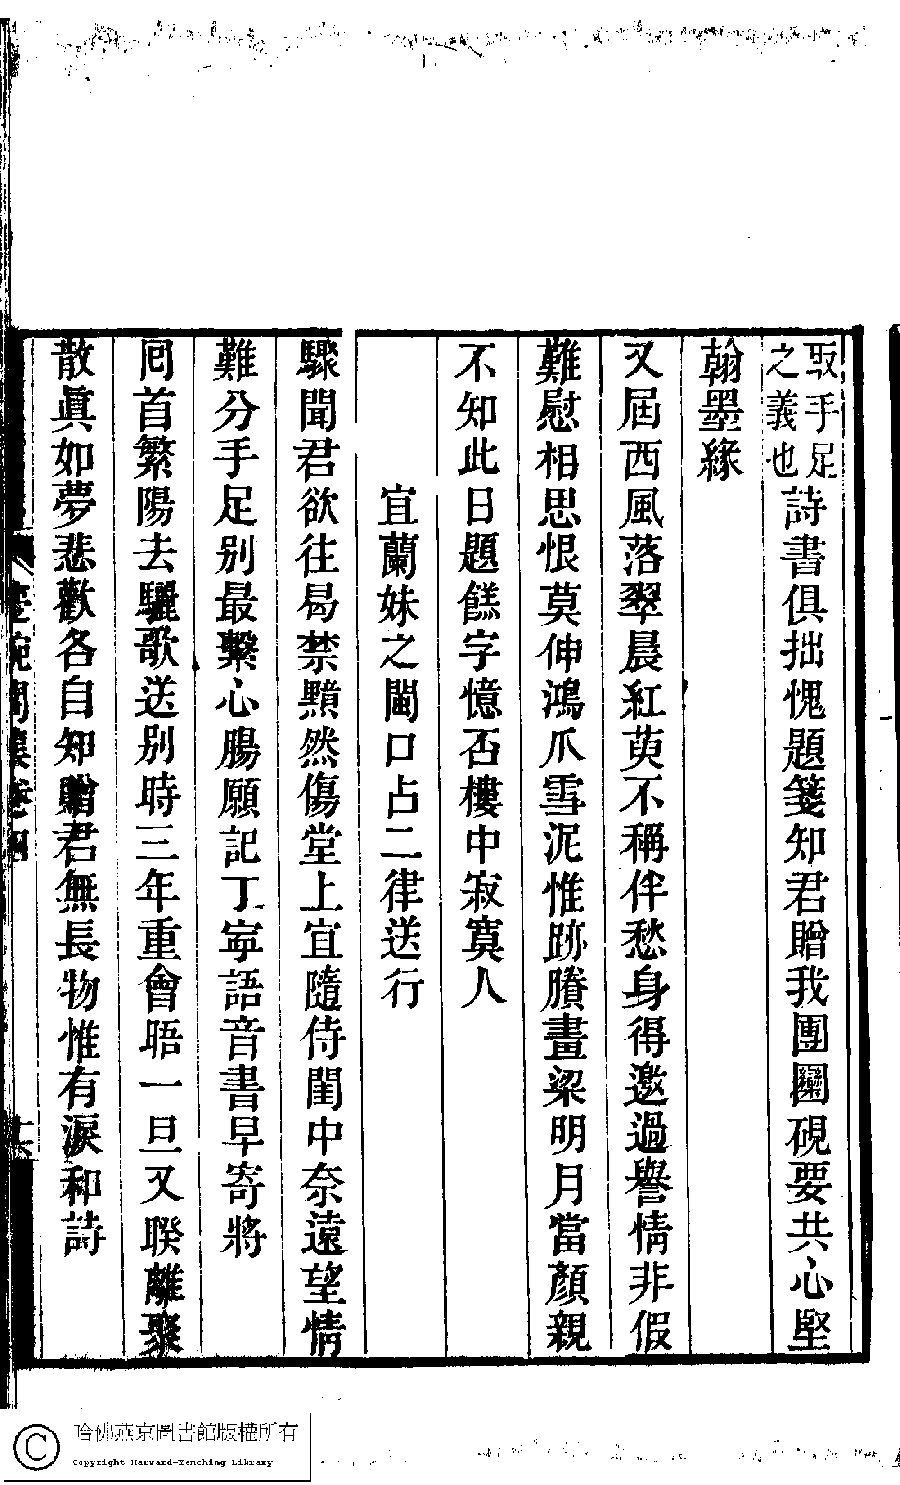 取手足
之義也
詩書俱拙愧題箋知君贈我團圞硯要共心堅
翰墨緣
又屆西風落翠晨紅萸不稱伴愁身得邀過譽情非假
難慰相思恨莫伸鴻爪雪泥惟跡賸畫梁明月當顏親
不知此日題餻字憶否樓中寂寞人
宜蘭妹之閩口占二律送行
驟聞君欲往曷禁黯然傷堂上宜隨侍閨中奈遠望情
難分手足別最繫心腸願記丁寧語音書早寄將
囘首繁陽去驪歌送別時三年重會晤一旦又睽離聚
散眞如夢悲歡各自知贈君無長物惟有淚和詩
閨集卷四
十六
哈佛燕京圖書館版權所有
Copyright Harvard-Yenching Library